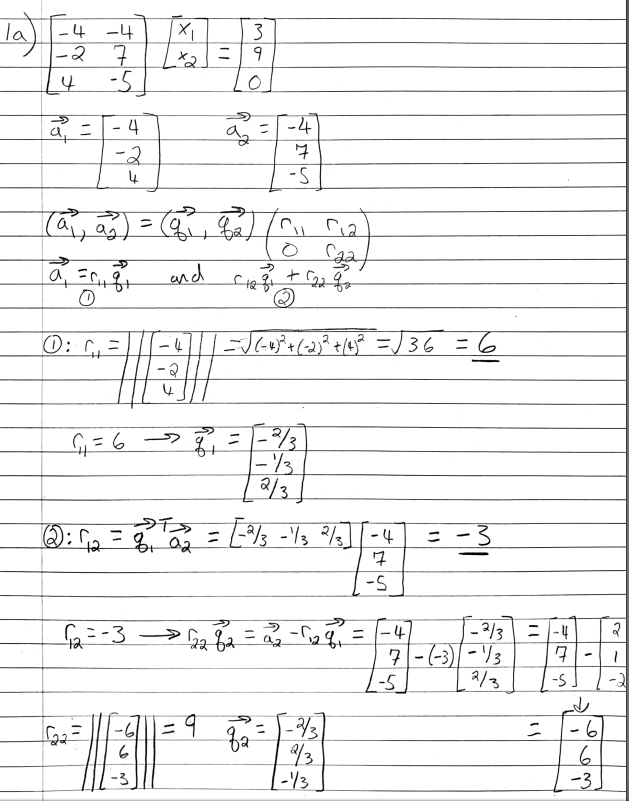 1a) [-4 -4; -2 7; 4 -5] [x₁; x₂] = [3; 9; 0]
a⃗₁ = [-4; -2; 4] a⃗₂ = [-4; 7; -5]
(a⃗₁, a⃗₂) = (q⃗₁, q⃗₂) (r₁₁ r₁₂; 0 r₂₂)
a⃗₁ = r₁₁ q⃗₁ and r₁₂ q⃗₁ + r₂₂ q⃗₂
① ②
①: r₁₁ = ||[-4; -2; 4]|| = √((-4)²+(-2)²+(4)²) = √36 = 6
r₁₁ = 6 → q⃗₁ = [-2/3; -1/3; 2/3]
②: r₁₂ = q⃗₁ᵀ a⃗₂ = [-2/3 -1/3 2/3] [-4; 7; -5] = -3
r₁₂ = -3 → r₂₂ q⃗₂ = a⃗₂ - r₁₂ q⃗₁ = [-4; 7; -5] - (-3) [-2/3; -1/3; 2/3] = [-4; 7; -5] - [2; 1; -2]
r₂₂ = ||[-6; 6; -3]|| = 9 q⃗₂ = [-2/3; 2/3; -1/3] = [-6; 6; -3]